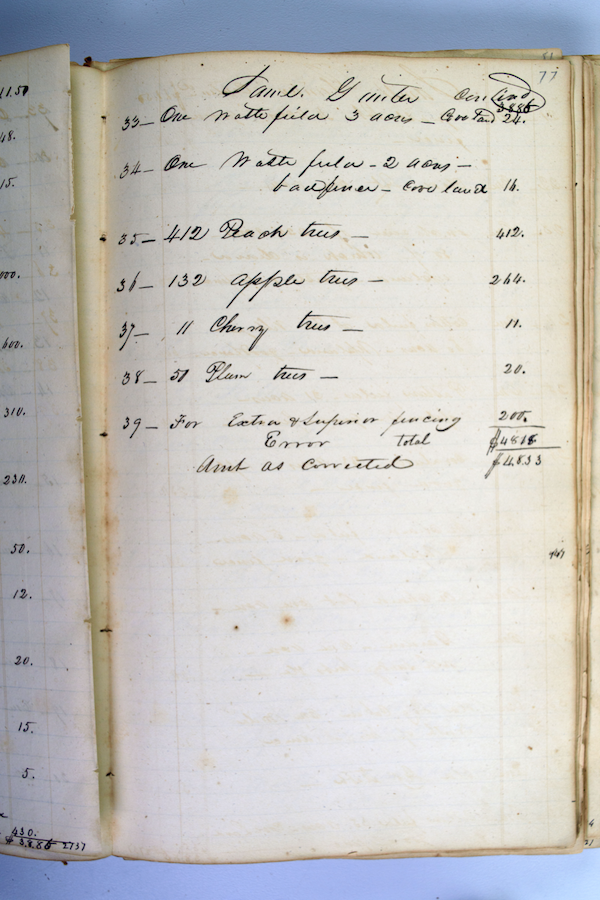 11.50
48.
15.
000.
600.
310.
230.
50.
12.
20.
15.
5.
430.
$3886 2737
77
Saml. Gunter Continued
3886
33— One Waste field 3 acres — Cove land 24.
34— One Waste field — 2 acres —
bad fence — Cove land 16.
35— 412 Peach trees — 412.
36— 132 apple trees — 264.
37— 11 Cherry trees — 11.
38— 50 Plum trees — 20.
39— For Extra & Superior fencing 200.
Error total $4818
Amt as corrected $4833